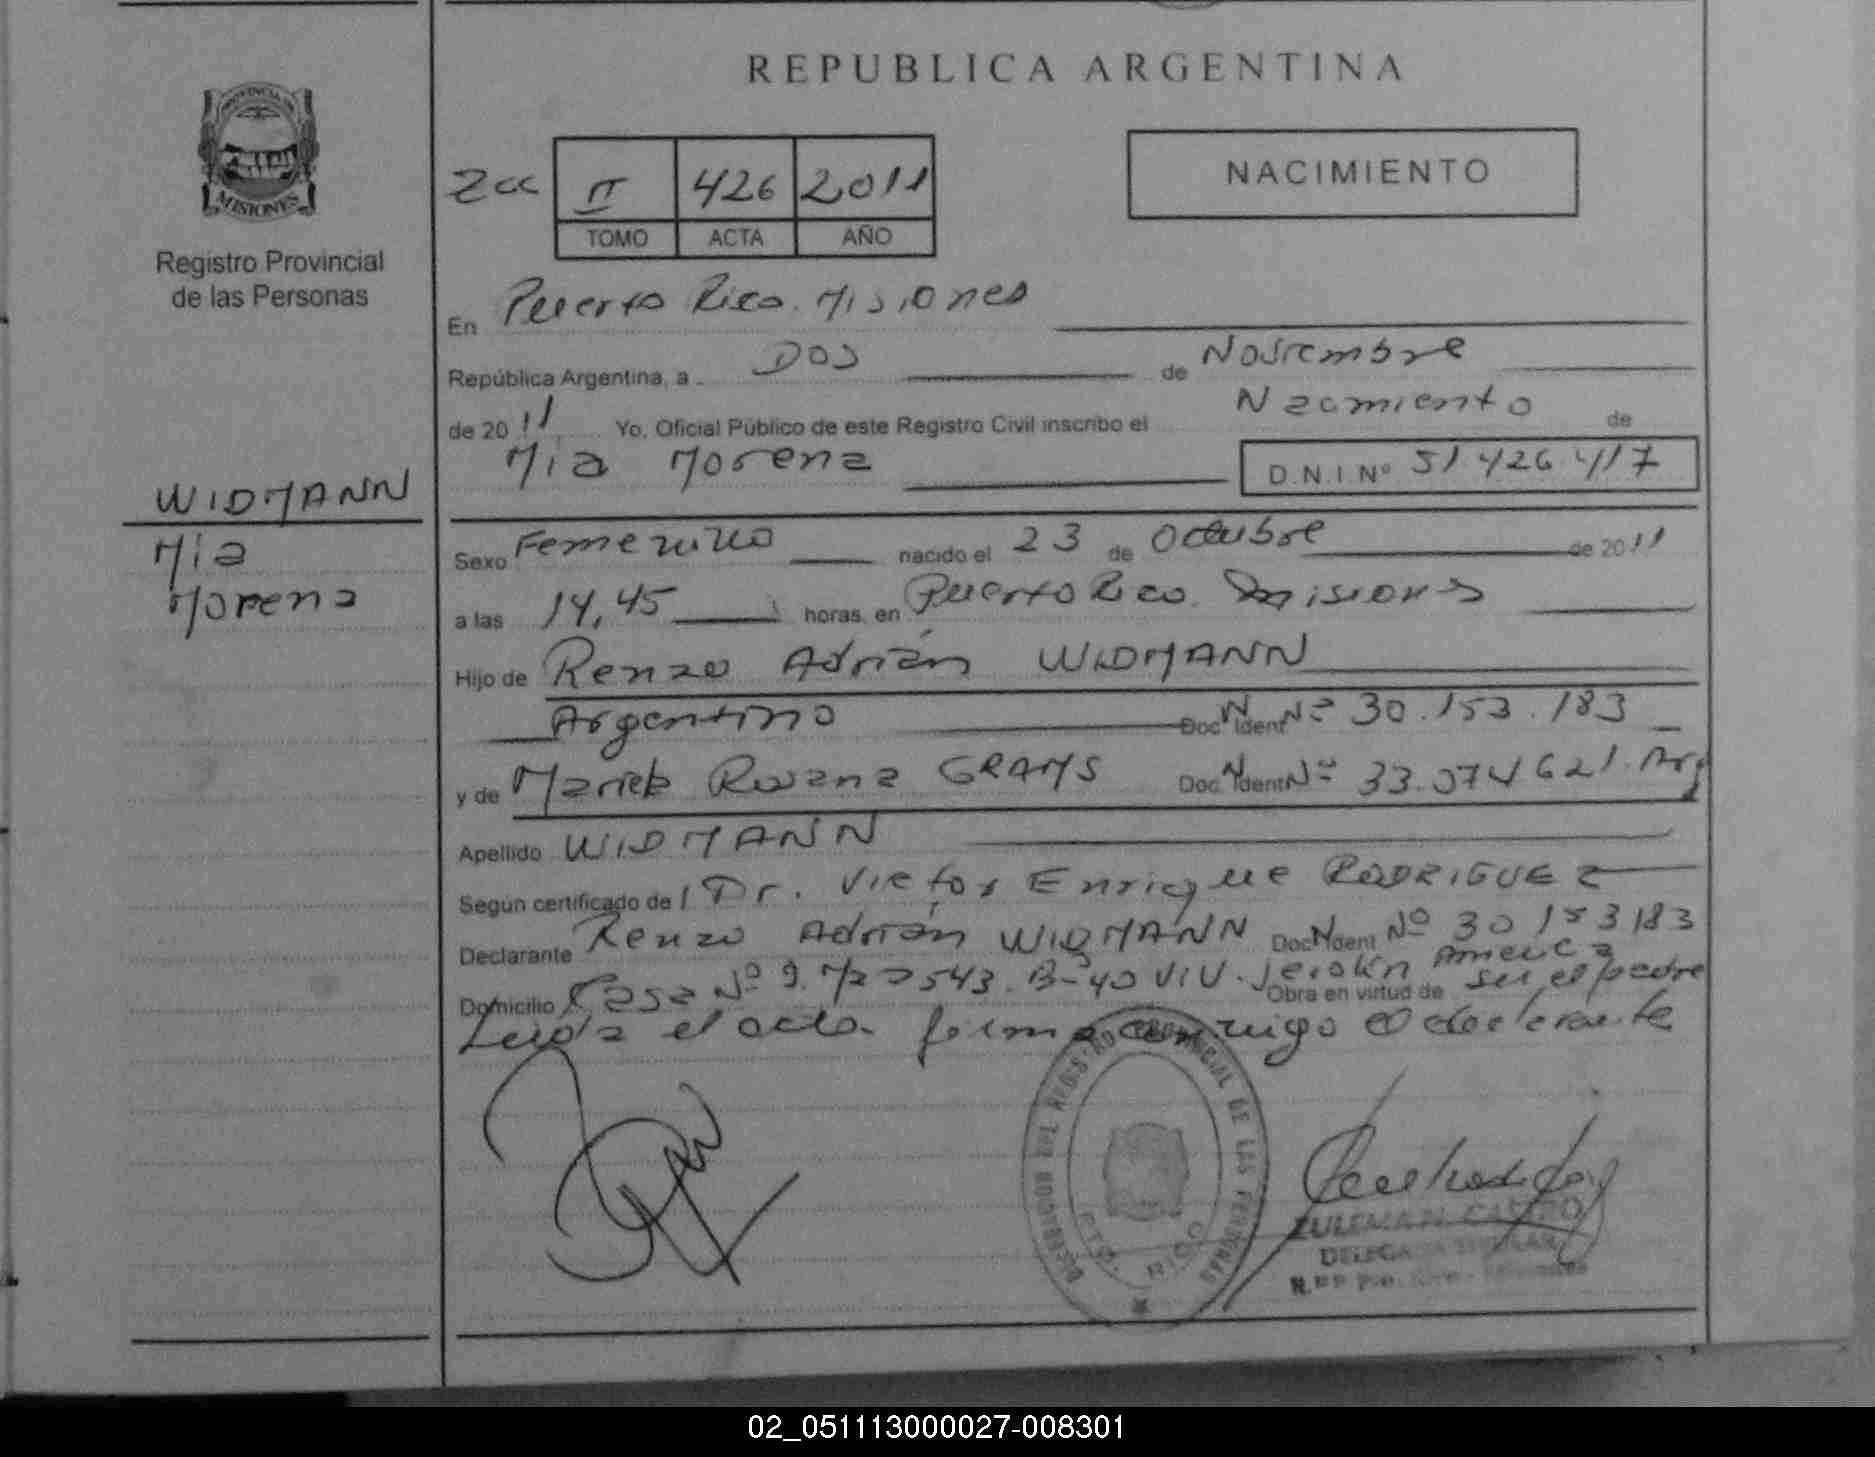 REPUBLICA ARGENTINA
PROVINCIA DE
MISIONES
Registro Provincial
de las Personas
II 426 2011
TOMO ACTA AÑO
NACIMIENTO
En Puerto Rico. Misiones
República Argentina, a Dos de Noviembre
de 2011 Yo, Oficial Público de este Registro Civil inscribo el Nacimiento de
Mia Morena D.N.I.Nº 51.426.417
WIDMANN
Mia
Morena
Sexo Femenino nacido el 23 de Octubre de 2011
a las 14,45 horas, en Puerto Rico. Misiones
Hijo de Renzo Adrián WIDMANN
Argentino Doc. Ident Nº 30.153.183
y de Mariela Roxana GRAMS Doc. Ident Nº 33.074621. Arg
Apellido WIDMANN
Según certificado de Dr. Victor Enrique RODRIGUEZ
Declarante Renzo Adrián WIDMANN Doc. Ident Nº 30153183
Domicilio Casa Nº 9. Mz 543. B-40 VIV. America
Obra en virtud de ser el padre
Leida el acta firma conmigo el declarante
REGISTRO PROVINCIAL DE LAS PERSONAS
PTO. RICO
ZULEMA N. CASTRO
DELEGADA TITULAR
02_051113000027-008301